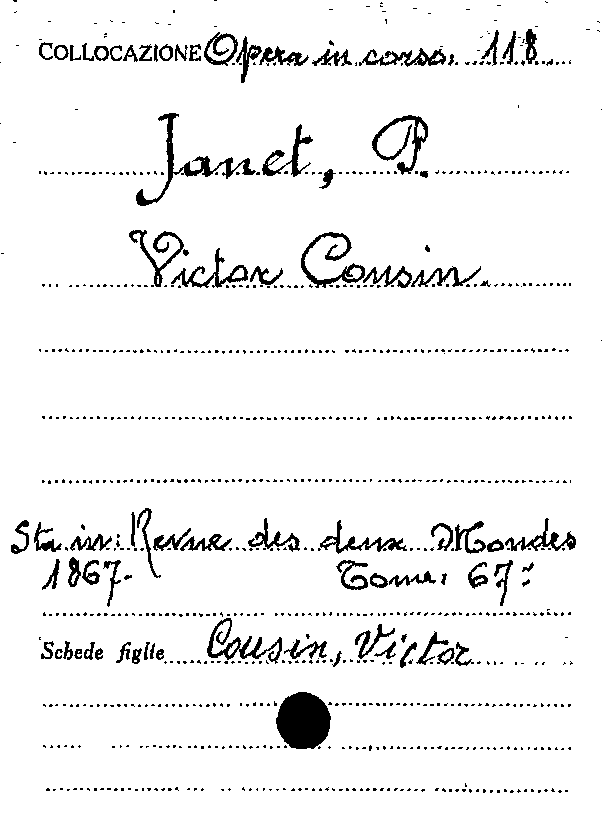 COLLOCAZIONE Opera in corso. 118.
Janet, P.
Victor Cousin.
Sta in: Revue des deux Mondes
1867- Tome: 67:
Schede figlie Cousin, Victor